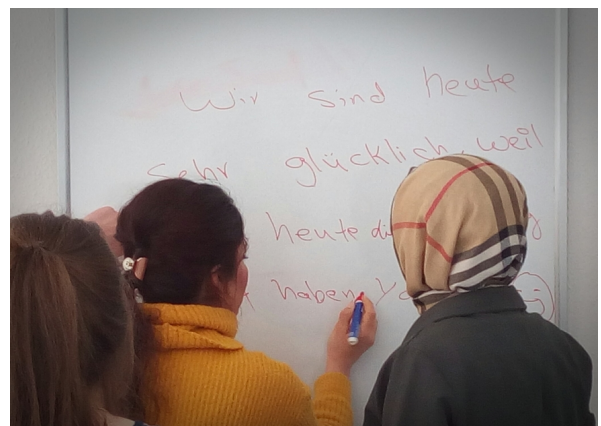 Wir sind heute
sehr glücklich weil
heute
haben